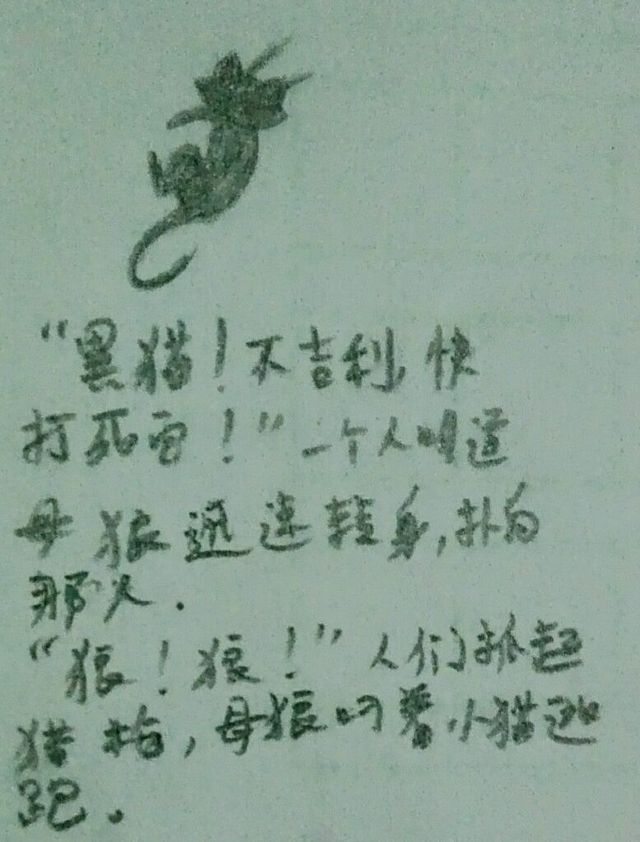 “黑猫！不吉利，快
打死它！”一个人叫道
母狼迅速转身，扑向
那人．
“狼！狼！”人们抓起
猎枪，母狼叼着小猫逃
跑．